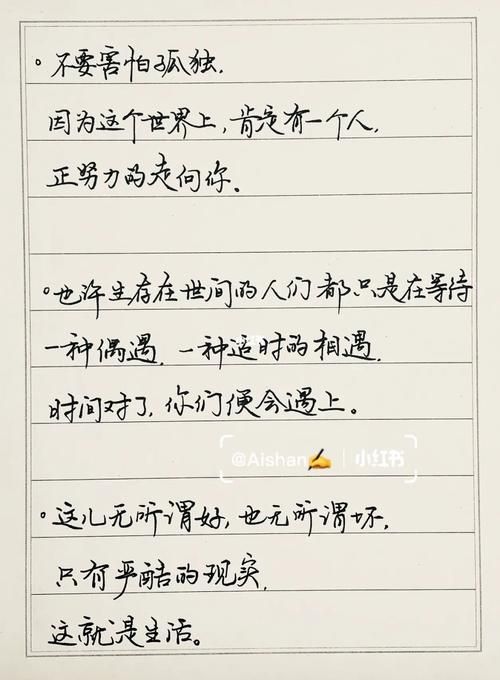 。不要害怕孤独.
因为这个世界上,肯定有一个人.
正努力的走向你.
。也许生存在世间的人们都只是在等待
一种偶遇.一种适时的相遇.
时间对了,你们便会遇上。
@Aishan✍️ | 小红书
。这儿无所谓好,也无所谓坏.
只有严酷的现实.
这就是生活。